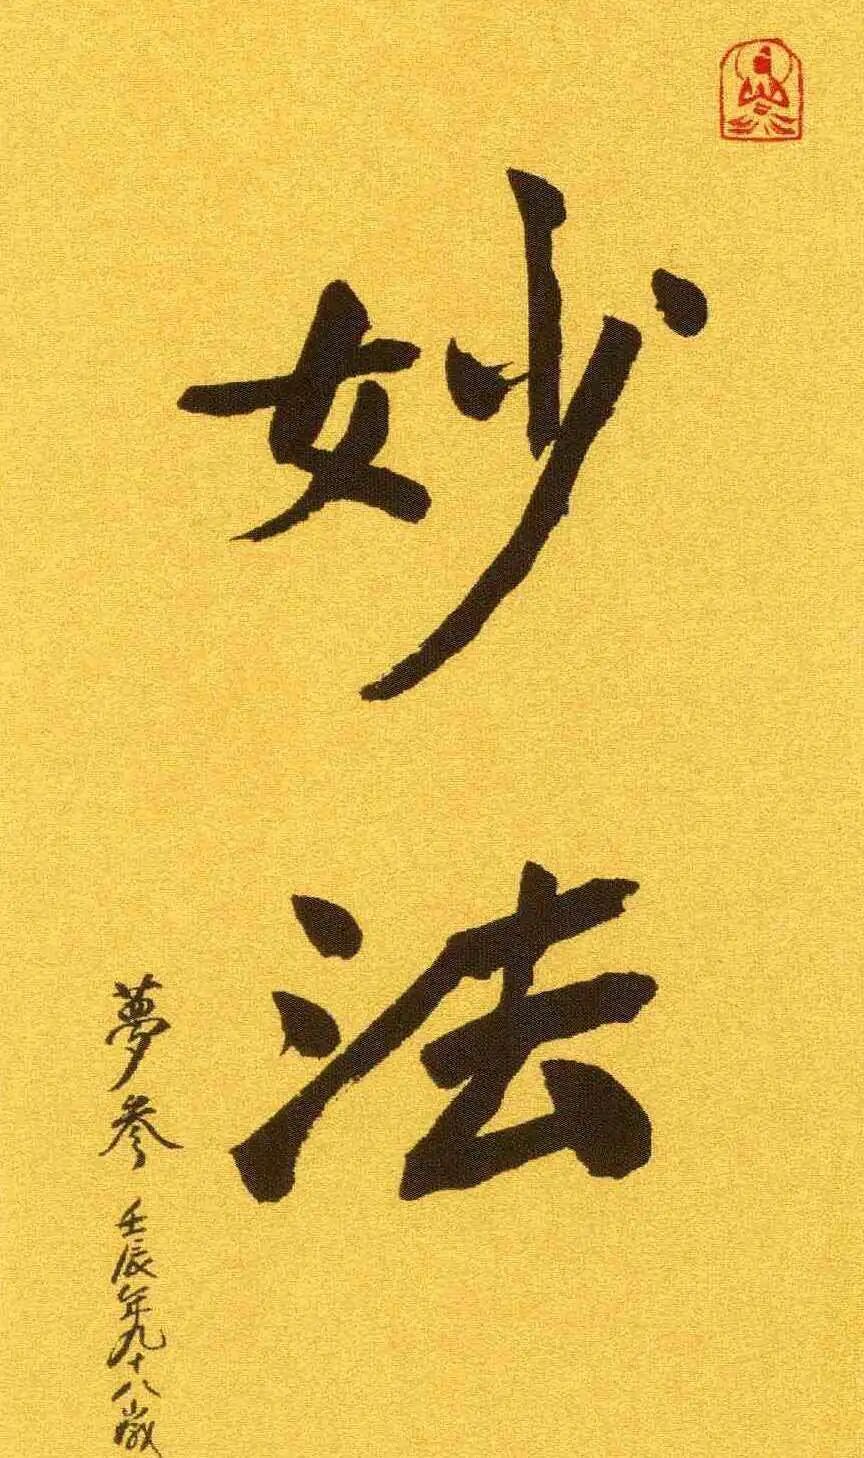 妙法
夢參
壬辰年九十八歲